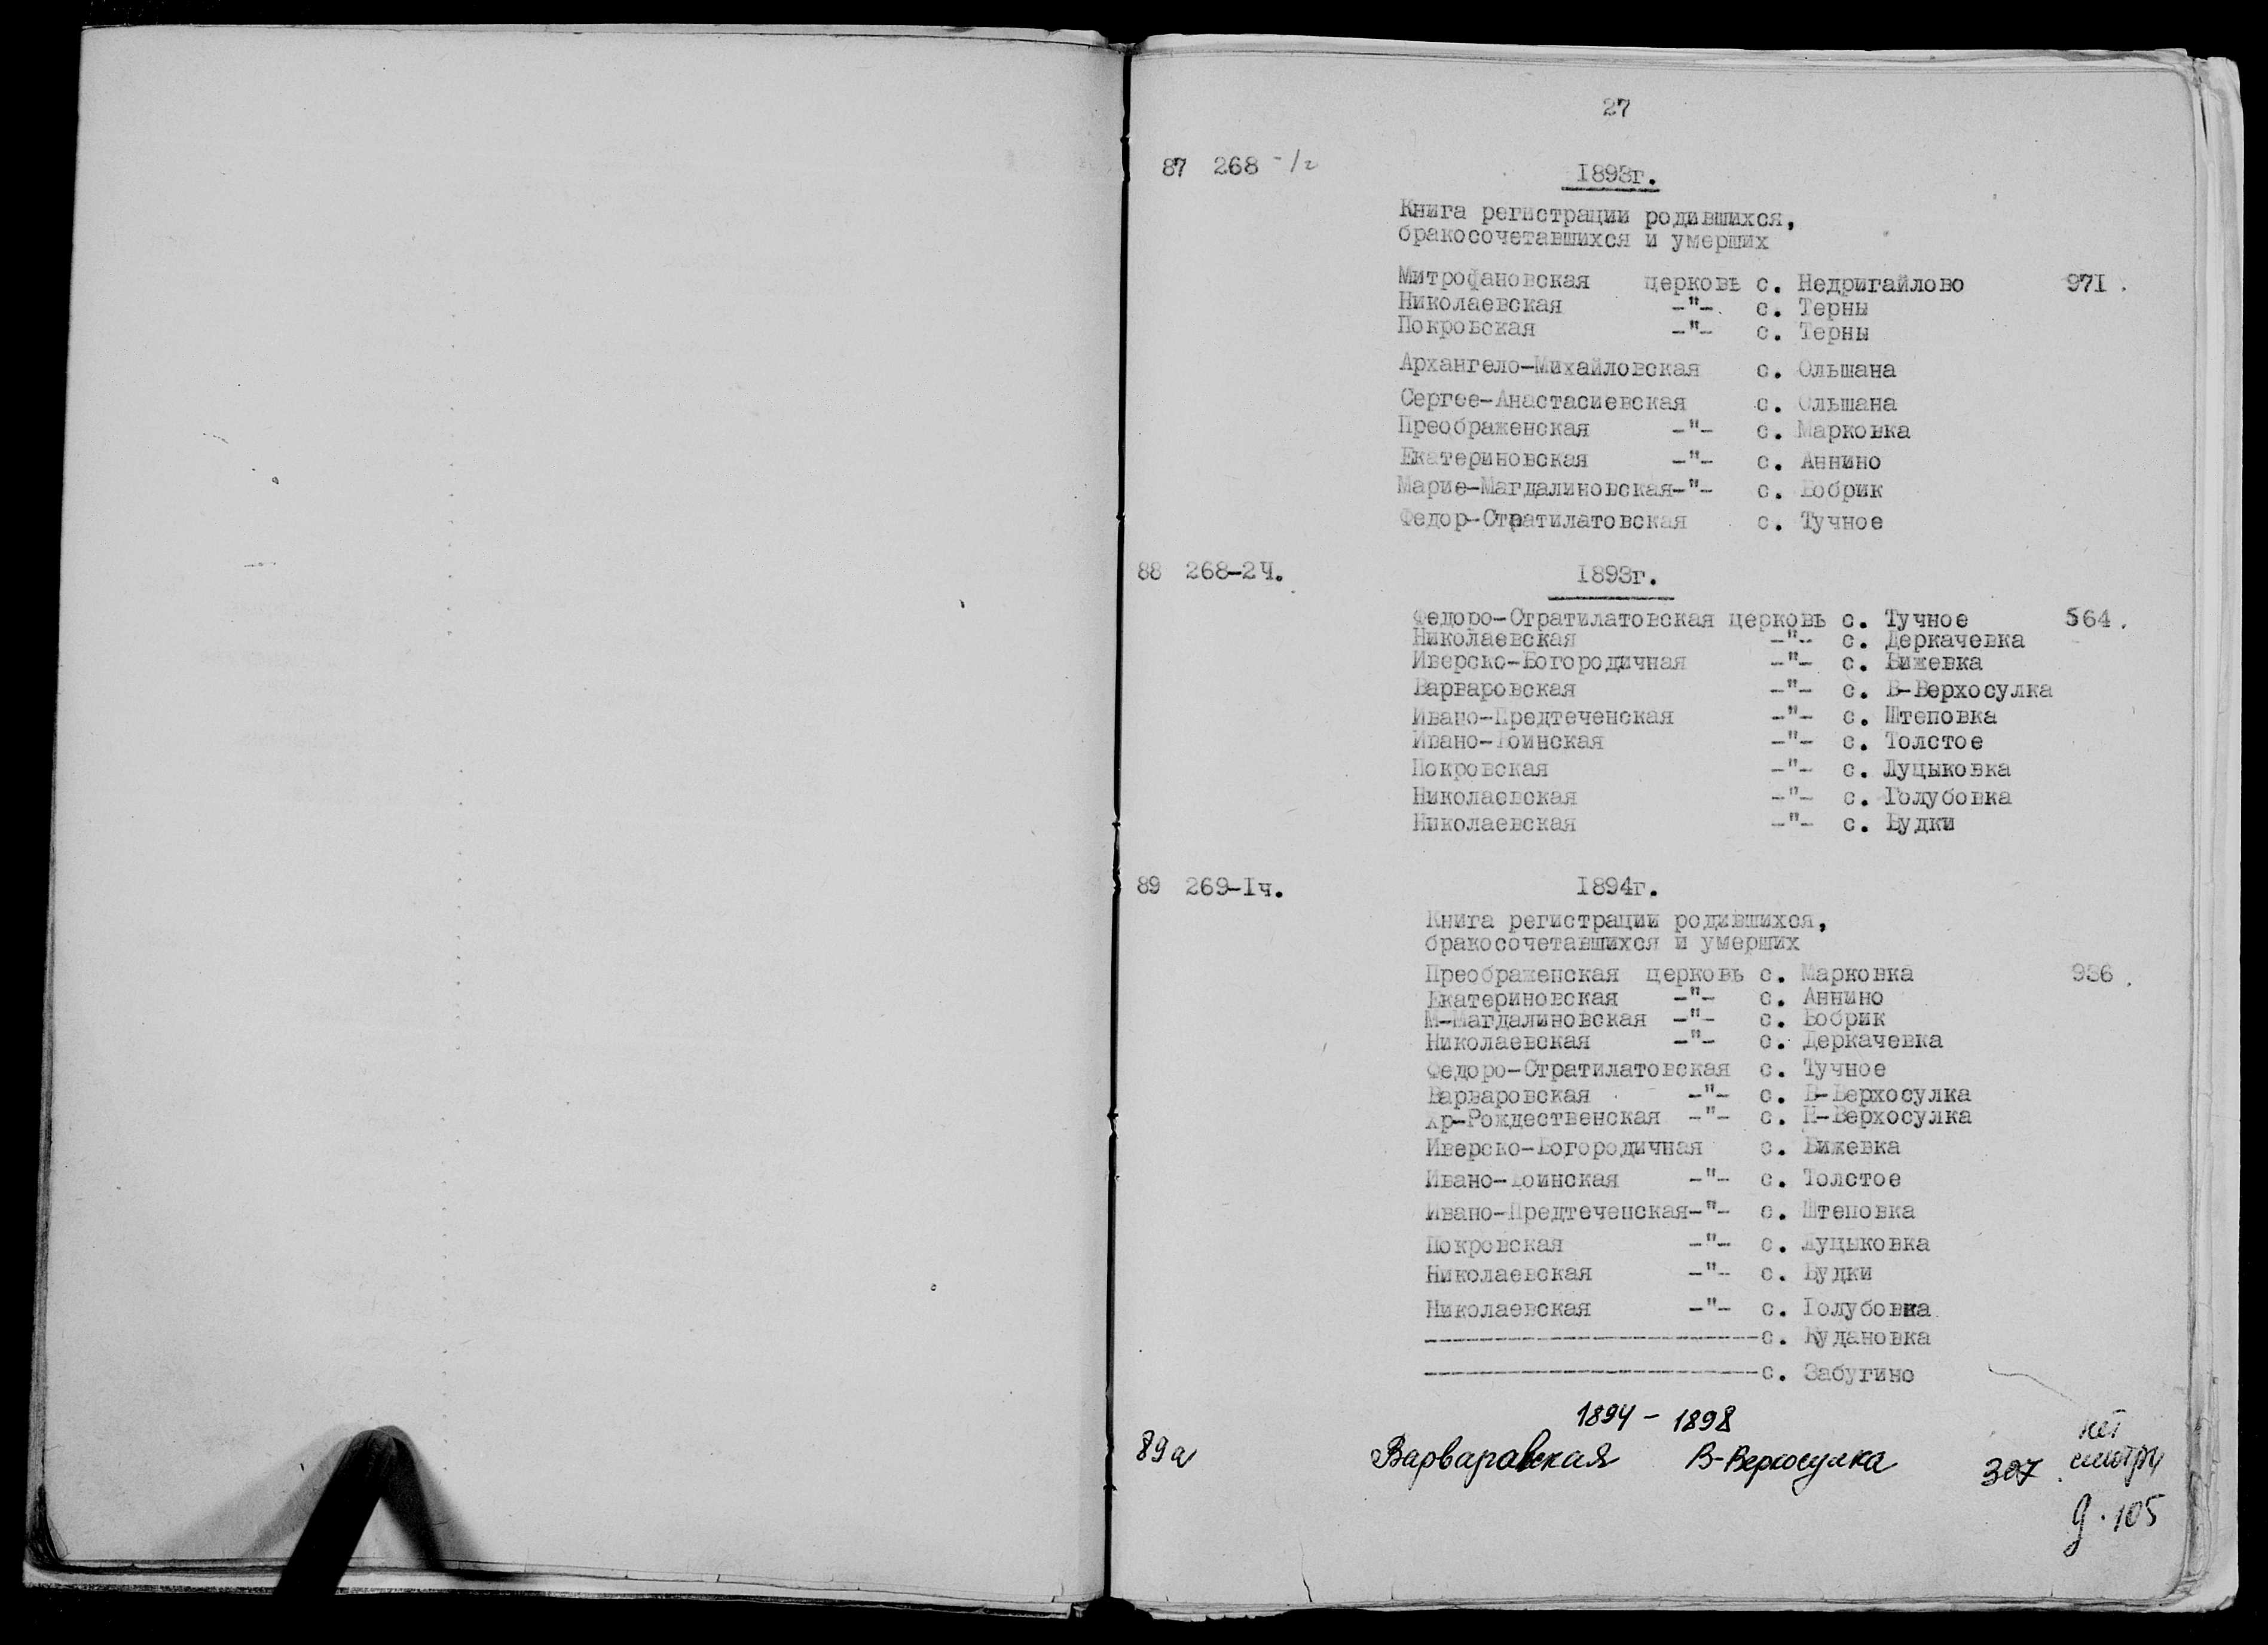 27
87 268 -1/2 1893г.
Книга регистрации родившихся,
бракосочетавшихся и умерших
Митрофановская церковь с. Недригайлово 971.
Николаевская -"- с. Терны
Покровская -"- с. Терны
Архангело-Михайловская с. Ольшана
Сергее-Анастасиевская с. Ольшана
Преображенская -"- с. Марковка
Екатериновская -"- с. Аннино
Марие-Магдалиновская-"- с. Бобрик
Федор-Стратилатовская с. Тучное
88 268-2Ч. 1893г.
Федоро-Стратилатовская церковь с. Тучное 564.
Николаевская -"- с. Деркачевка
Иверско-Богородичная -"- с. Бижевка
Варваровская -"- с. В-Верхосулка
Ивано-Предтеченская -"- с. Штеповка
Ивано-Воинская -"- с. Толстое
Покровская -"- с. Луцыковка
Николаевская -"- с. Голубовка
Николаевская -"- с. Будки
89 269-Iч. 1894г.
Книга регистрации родившихся,
бракосочетавшихся и умерших
Преображенская церковь с. Марковка 936.
Екатериновская -"- с. Аннино
М-Магдалиновская -"- с. Бобрик
Николаевская -"- с. Деркачевка
Федоро-Стратилатовская с. Тучное
Варваровская -"- с. В-Верхосулка
Хр-Рождественская -"- с. Н-Верхосулка
Иверско-Богородичная с. Бижевка
Ивано-Воинская -"- с. Толстое
Ивано-Предтеченская-"- с. Штеповка
Покровская -"- с. Луцыковка
Николаевская -"- с. Будки
Николаевская -"- с. Голубовка
------------------------с. Кудановка
------------------------с. Забугино
1894 - 1898
89а Варваравская В-Верхосулка 307. нет
смотри
д. 105